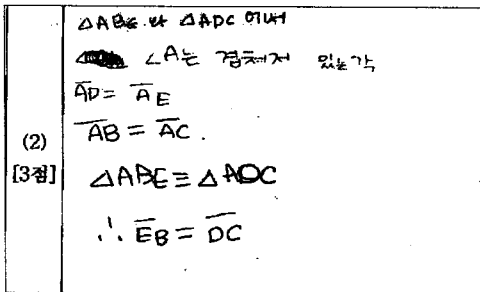 △ABE 와 △ADC 에서
∠A는 겹쳐져 있는각
A̅D̅ = A̅E̅
A̅B̅ = A̅C̅.
(2)
[3점]
△ABE ≡ △ADC
∴ E̅B̅ = D̅C̅